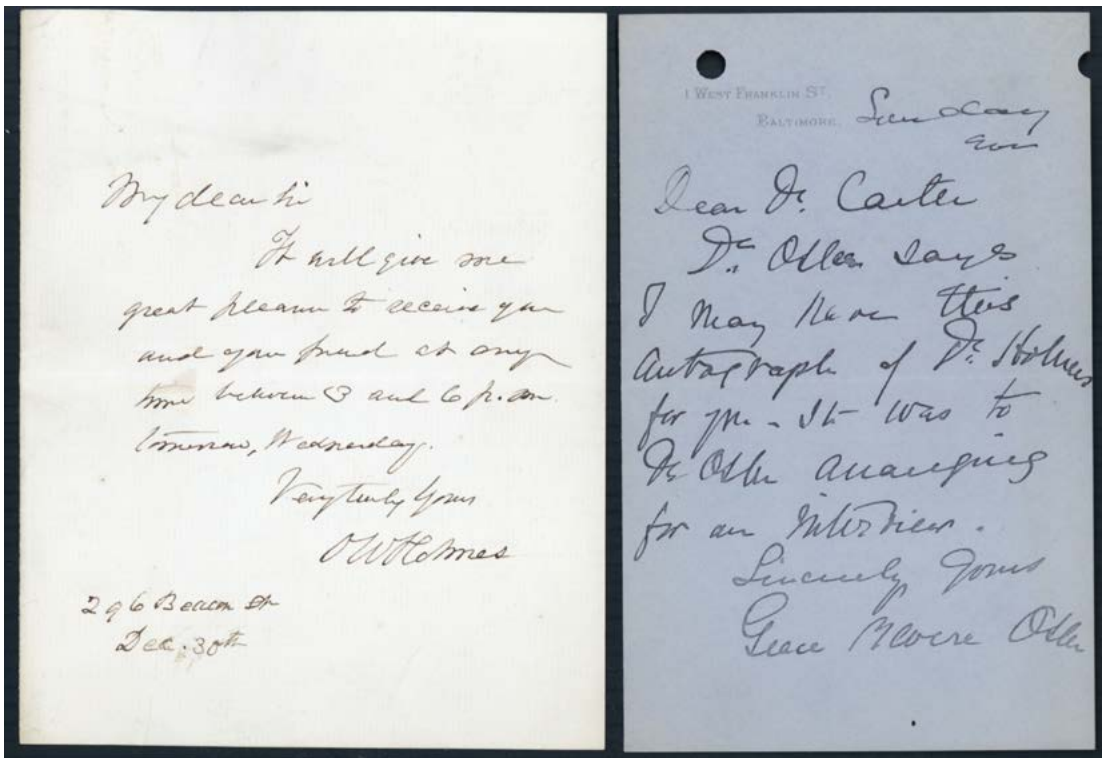 My dear Sir
It will give me
great pleasure to receive you
and your friend at any
time between 3 and 6 p.m.
tomorrow, Wednesday.
Very truly yours
O W Holmes
296 Beacon St
Dec. 30th
1 WEST FRANKLIN ST.
BALTIMORE. Sunday
Dear Dr. Carter
Dr. Osler says
I may have this
autograph of Dr. Holmes
for you - It was to
Dr. Osler arranging
for an interview.
Sincerely yours
Grace Revere Osler